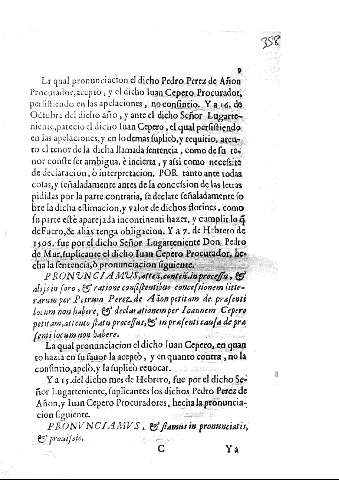 358
9
La qual pronunciacion el dicho Pedro Perez de Añon
Procurador, aceptò, y el dicho Iuan Cepero Procurador,
persistiendo en las apelaciones, no consintio. Y a 16. de
Octubre del dicho año, y ante el dicho Señor Lugarte-
niente, parecio el dicho Iuan Cepero, el qual persistiendo
en las apelaciones, y en lo demas suplicò, y requirio, aten-
to el tenor de la dicha llamada sentencia, como de su te-
nor conste ser ambigua, è incierta, y assi como necessite
de declaracion, ò interpretacion, POR tanto ante todas
cosas, y señaladamente antes de la concession de las letras
pididas por la parte contraria, se declare señaladamente so-
bre la dicha estimacion, y valor de dichos florines, como
su parte estè aparejada incontinenti hazer, y cumplir lo q̃
de Fuero, & aliàs tenga obligacion. Y a 7. de Hebrero de
1506. fue por el dicho Señor Lugarteniente Don Pedro
de Mur, suplicante el dicho Iuan Cepero Procurador, he-
cha la sentencia, ò pronunciacion siguiente.
PRONVNCIAMVS, atten. conten. in processu, &
alijs in foro, & ratione consistentibus concessionem litte-
rarum per Petrum Perez de Añon petitam de præsenti
locum non habere, & declarationem per Ioannem Cepero
petitam, attento statu processus, & in præsenti causa de præ-
senti locum non habere.
La qual pronunciacion el dicho Iuan Cepero, en quan-
to hazia en su favor la aceptò, y en quanto contra, no la
consintio, apelò, y la suplicò revocar.
Y a 15. del dicho mes de Hebrero, fue por el dicho Se-
ñor Lugarteniente, suplicantes los dichos Pedro Perez de
Añon, y Iuan Cepero Procuradores, hecha la pronuncia-
cion siguiente.
PRONVNCIAMVS, & stamus in pronunciatis,
& provisis.
C Ya